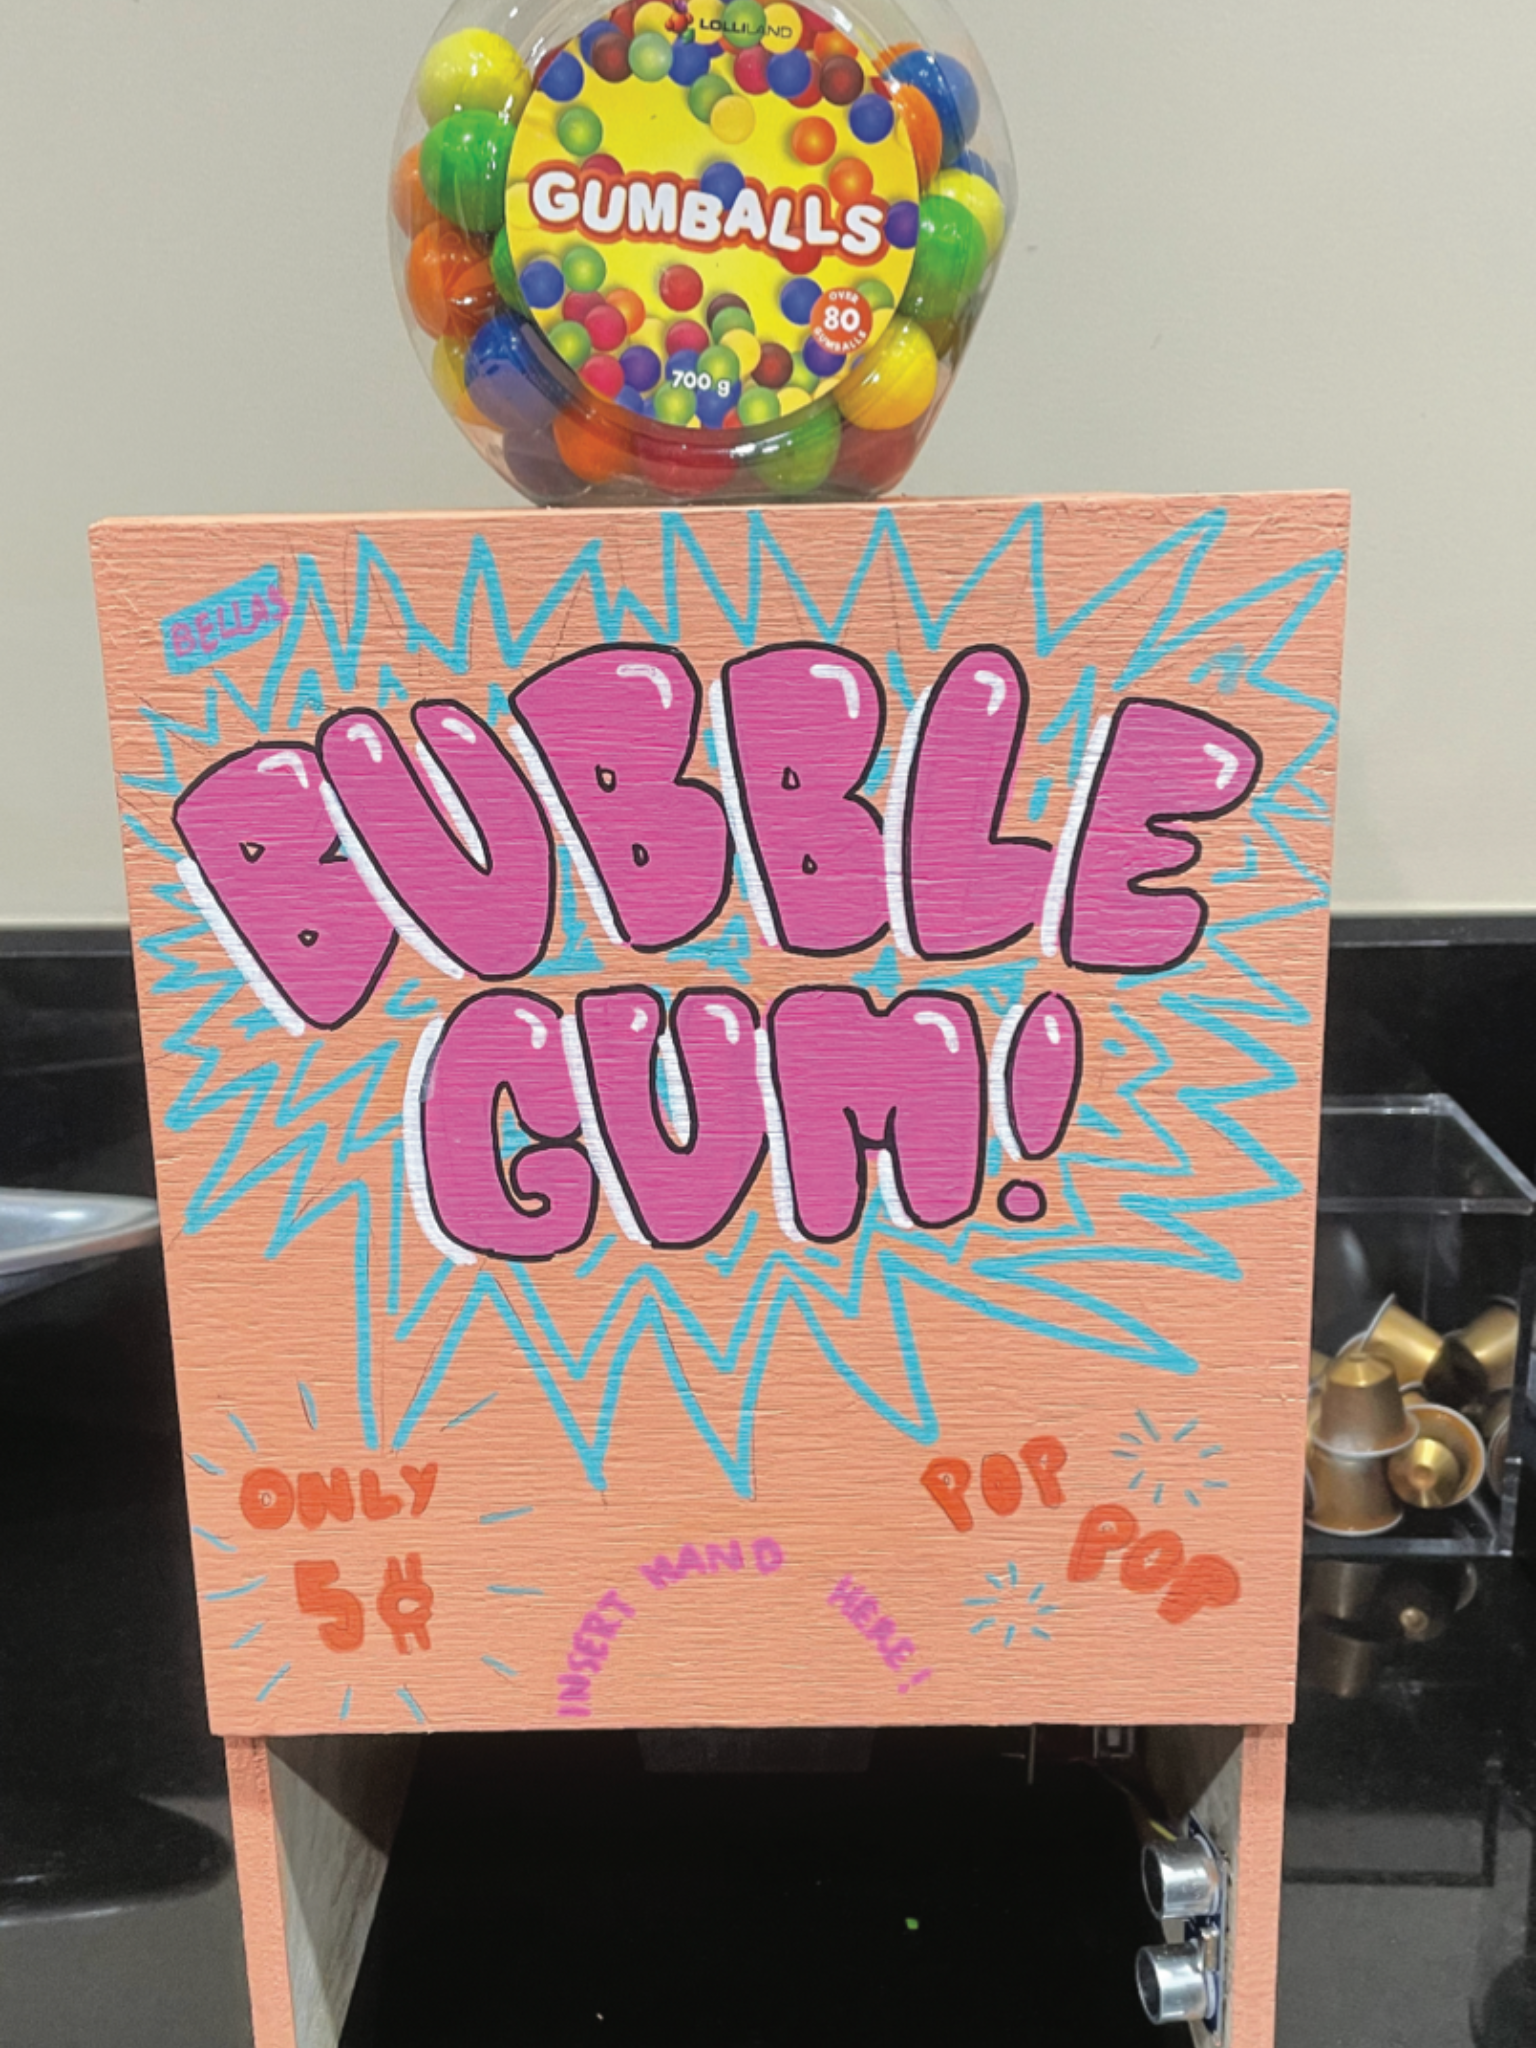 LOLLILAND
GUMBALLS
OVER
80
GUMBALLS
700 g
BELLAS
BUBBLE
GUM!
ONLY
5¢
INSERT HAND HERE!
POP
POP